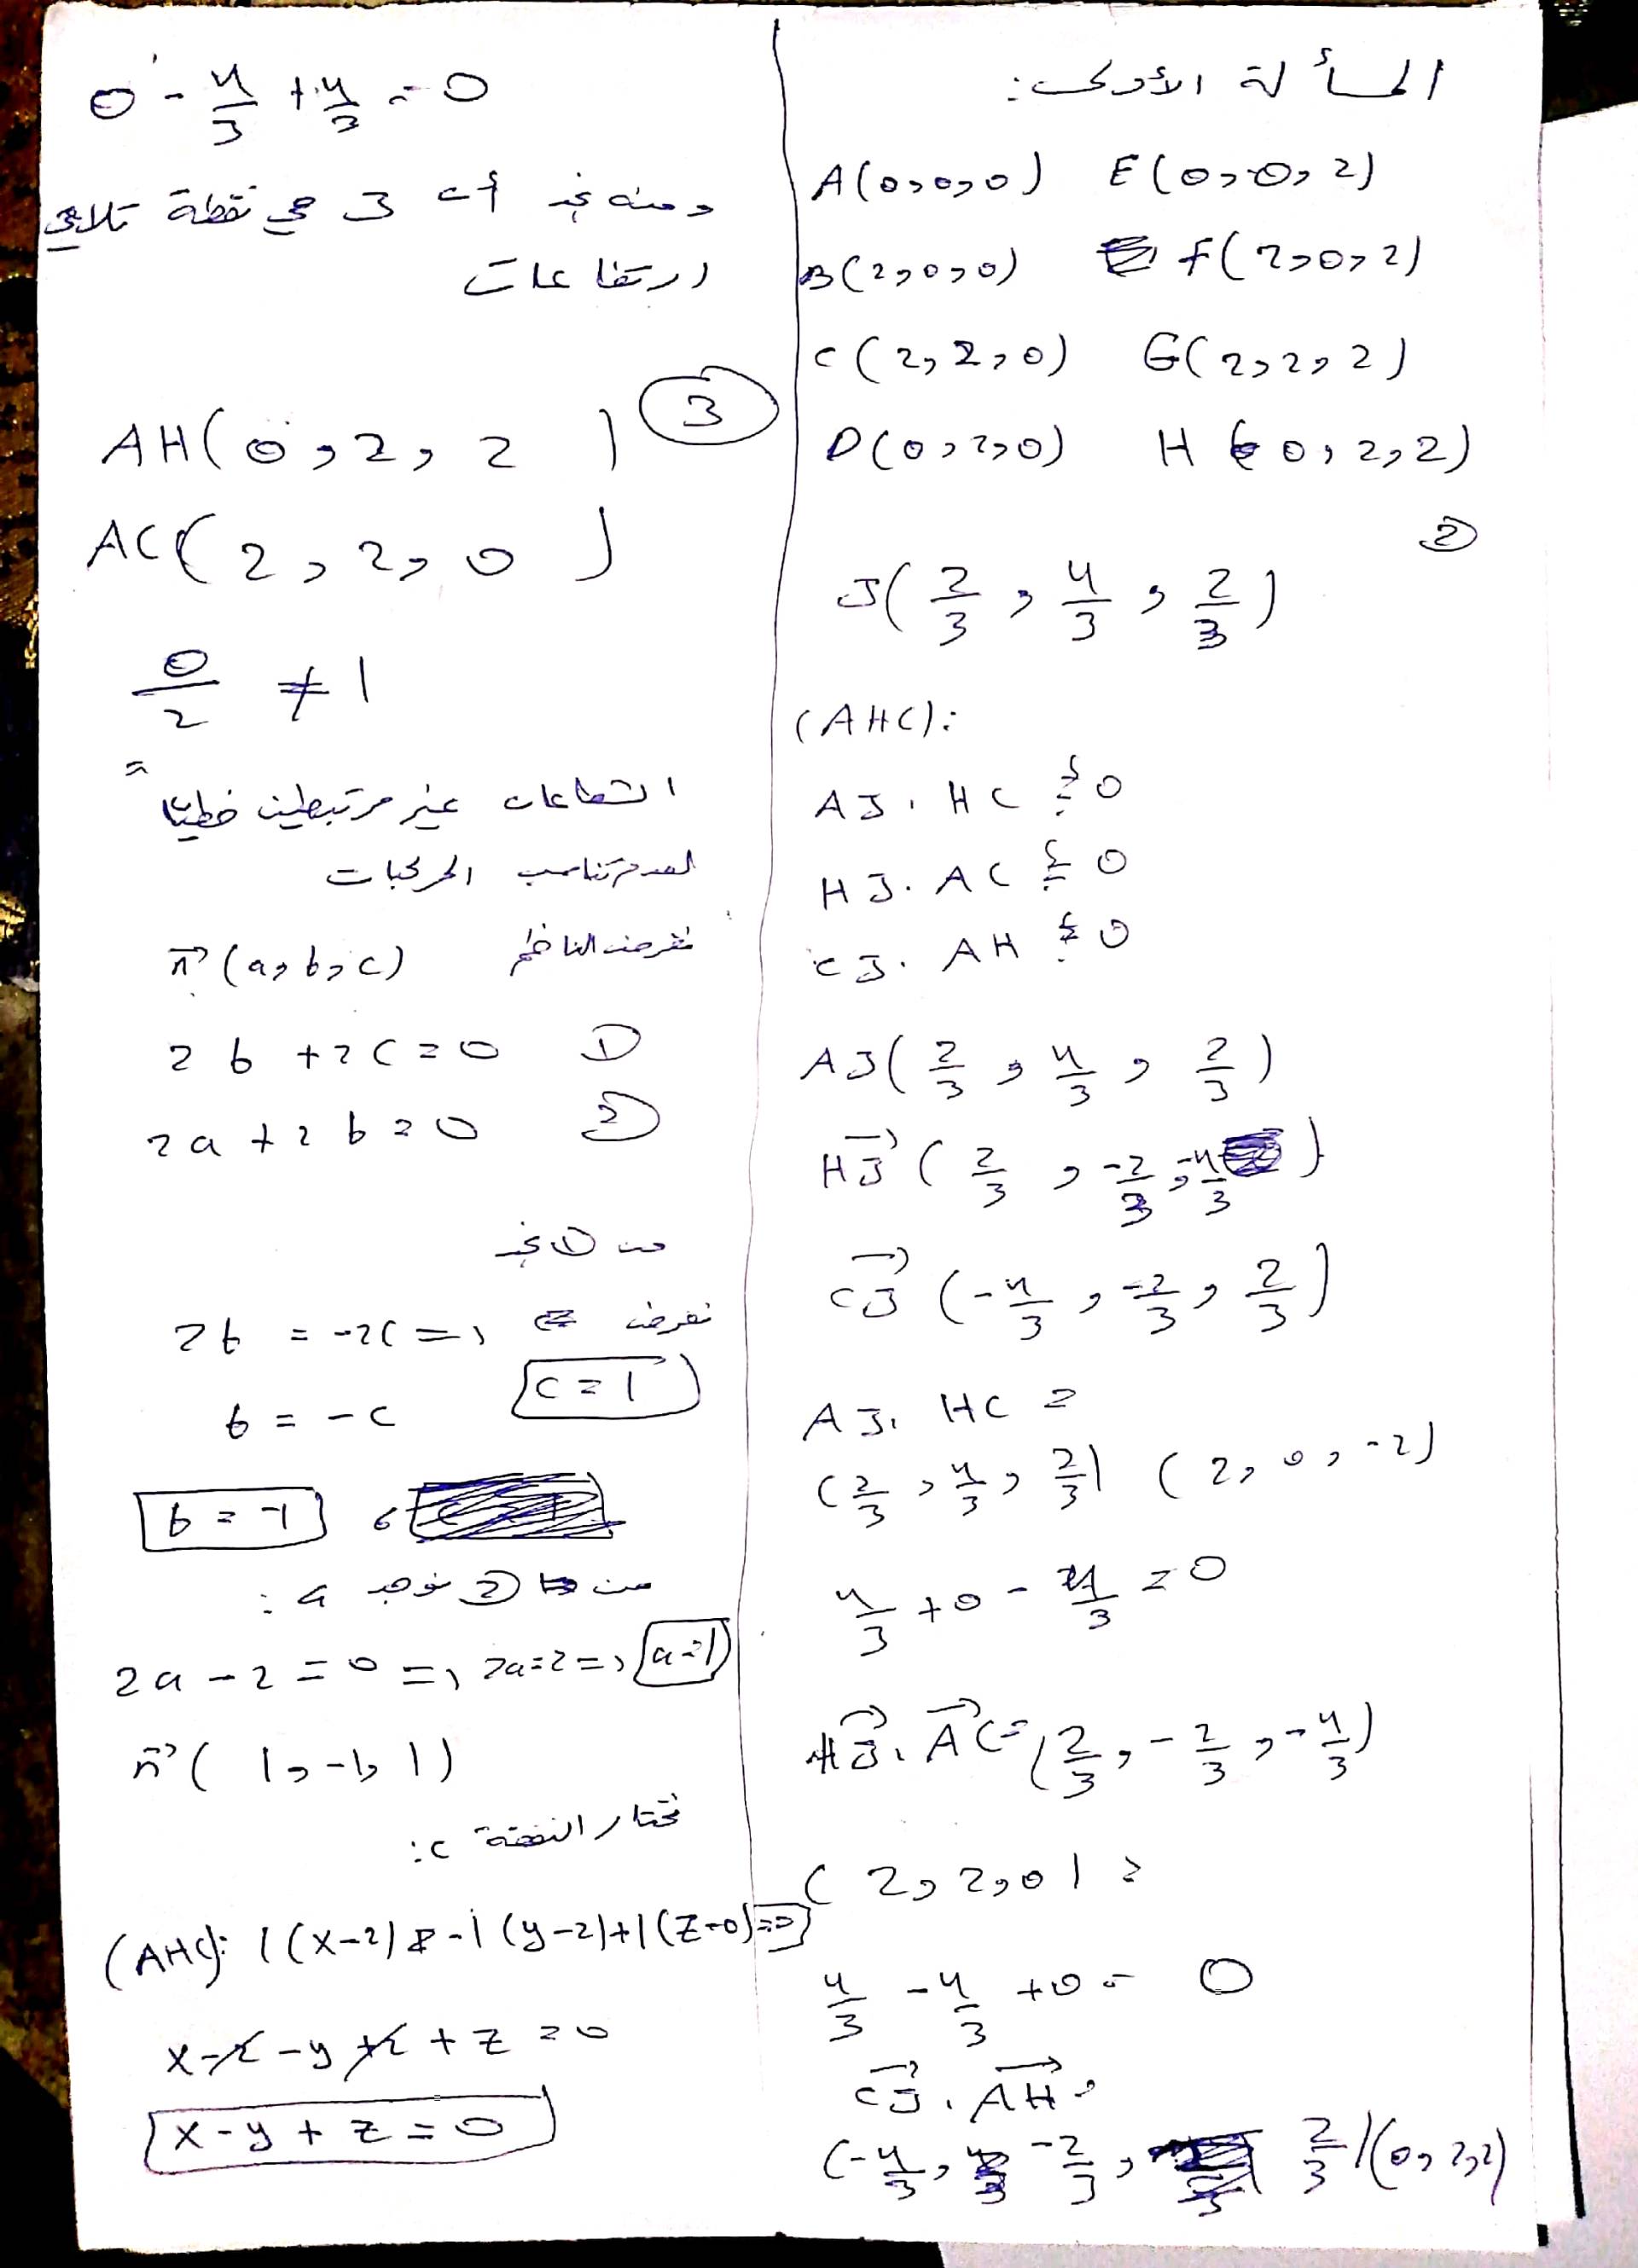 المسألة الأولى:
A(0,0,0) E(0,0,2)
B(2,0,0) F(2,0,2)
C(2,2,0) G(2,2,2)
D(0,2,0) H(0,2,2)
②
J(2/3, 4/3, 2/3)
(AHC):
AJ . HC =؟ 0
HJ . AC =؟ 0
CJ . AH =؟ 0
AJ(2/3, 4/3, 2/3)
HJ→(2/3, -2/3, -4/3)
CJ→(-4/3, -2/3, 2/3)
AJ . HC =
(2/3, 4/3, 2/3) (2, 0, -2)
4/3 + 0 - 4/3 = 0
HJ→ . AC→ = (2/3, -2/3, -4/3)
(2,2,0) =
4/3 - 4/3 + 0 = 0
CJ→ . AH→ =
(-4/3, -2/3, 2/3)(0,2,2)
0 - 4/3 + 4/3 = 0
ومنه نجد أن J هي نقطة تلاقي
ارتفاعات
③
AH(0,2,2)
AC(2,2,0)
0/2 ≠ 1
الشعاعان غير مرتبطين خطياً
لعدم تناسب المركبات
نفرض الناظم n→(a,b,c)
2b + 2c = 0 ①
2a + 2b = 0 ②
من ① نجد
نفرض 2b = -2c ⇒
b = -c c = 1
b = -1
من ② نوجد a:
2a - 2 = 0 ⇒ 2a = 2 ⇒ a = 1
n→(1,-1,1)
نختار النقطة C:
(AHC): 1(x-2) - 1(y-2) + 1(z-0) = 0
x - 2 - y + 2 + z = 0
x - y + z = 0